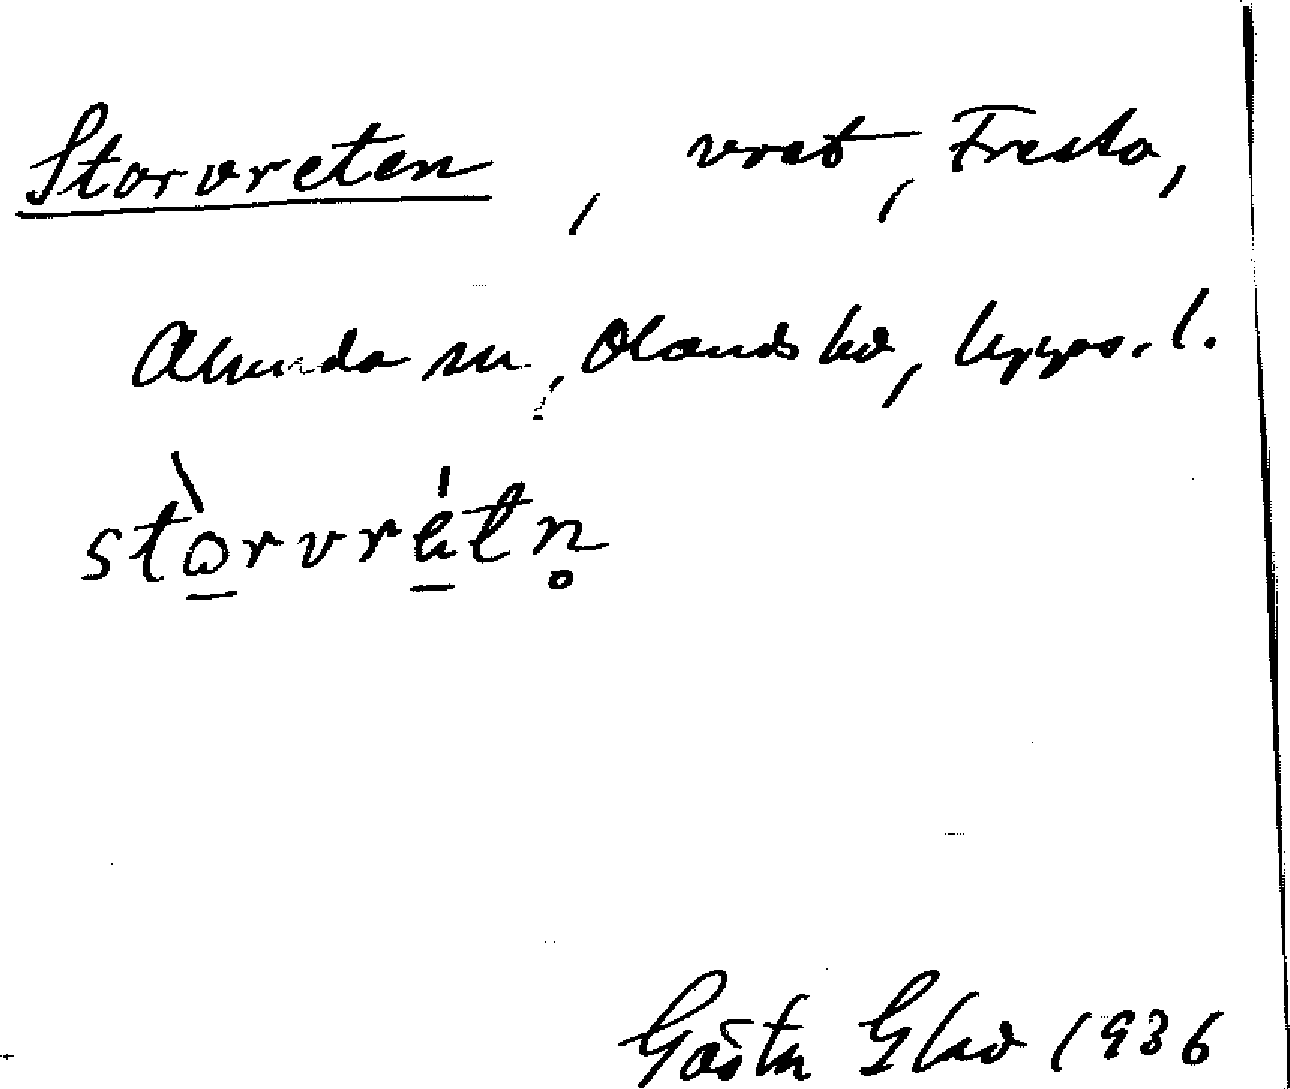 Storvreten, vret, Fresta,
Alunda sn, Olands hd, Uppsa. l.
stòrvrètn̥
Gösta Glad 1936